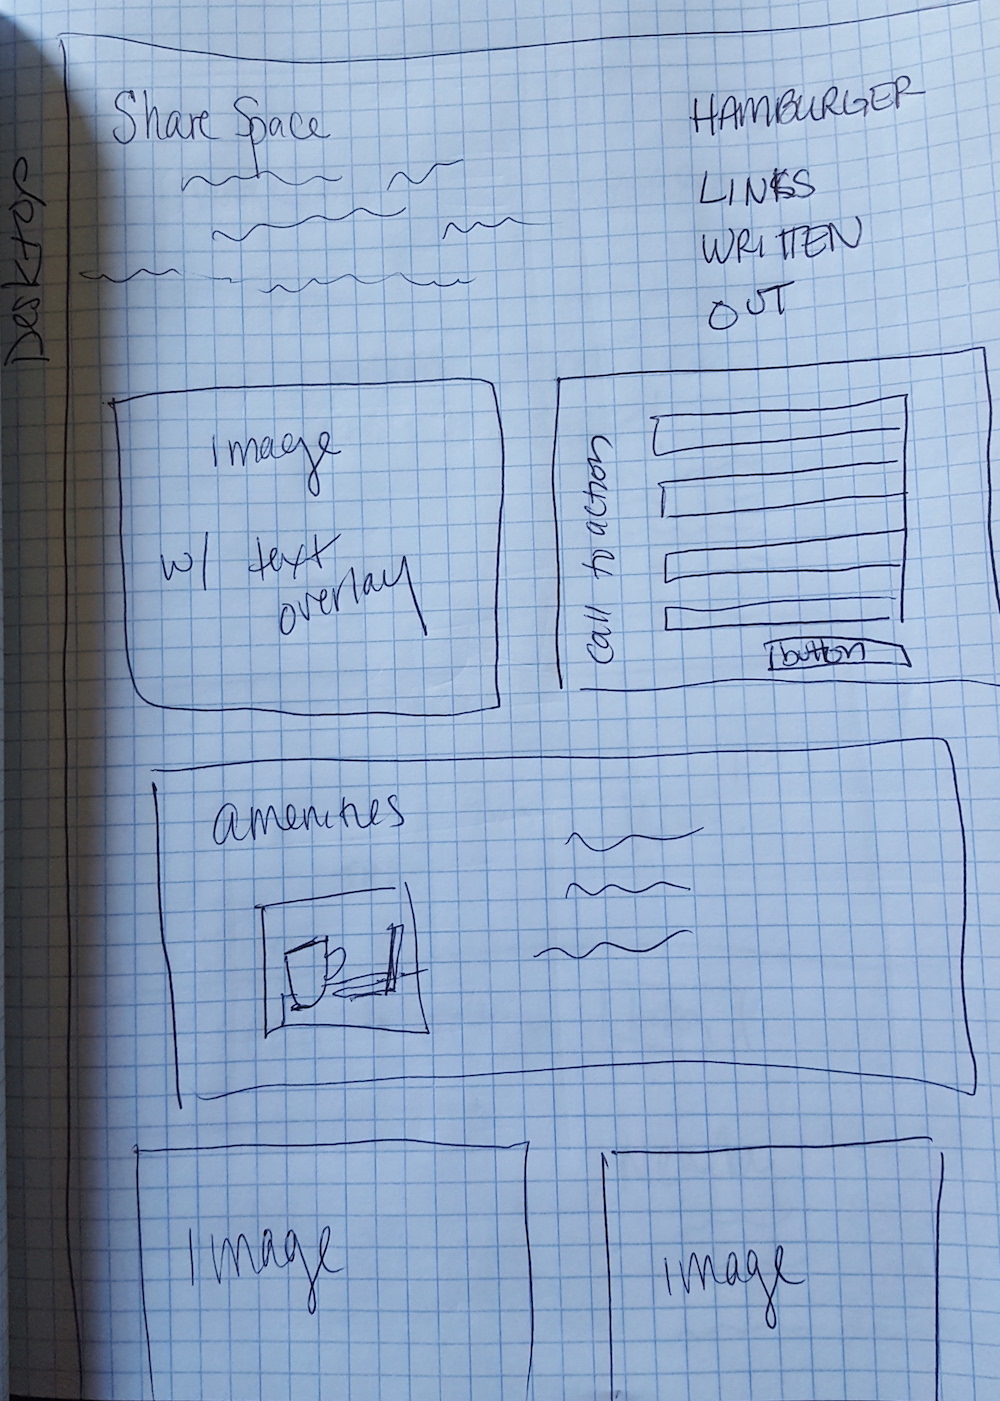 Desktop
Share Space
HAMBURGER
LINKS
WRITTEN
OUT
image
w/ text
overlay
call to action
button
amenities
image
image